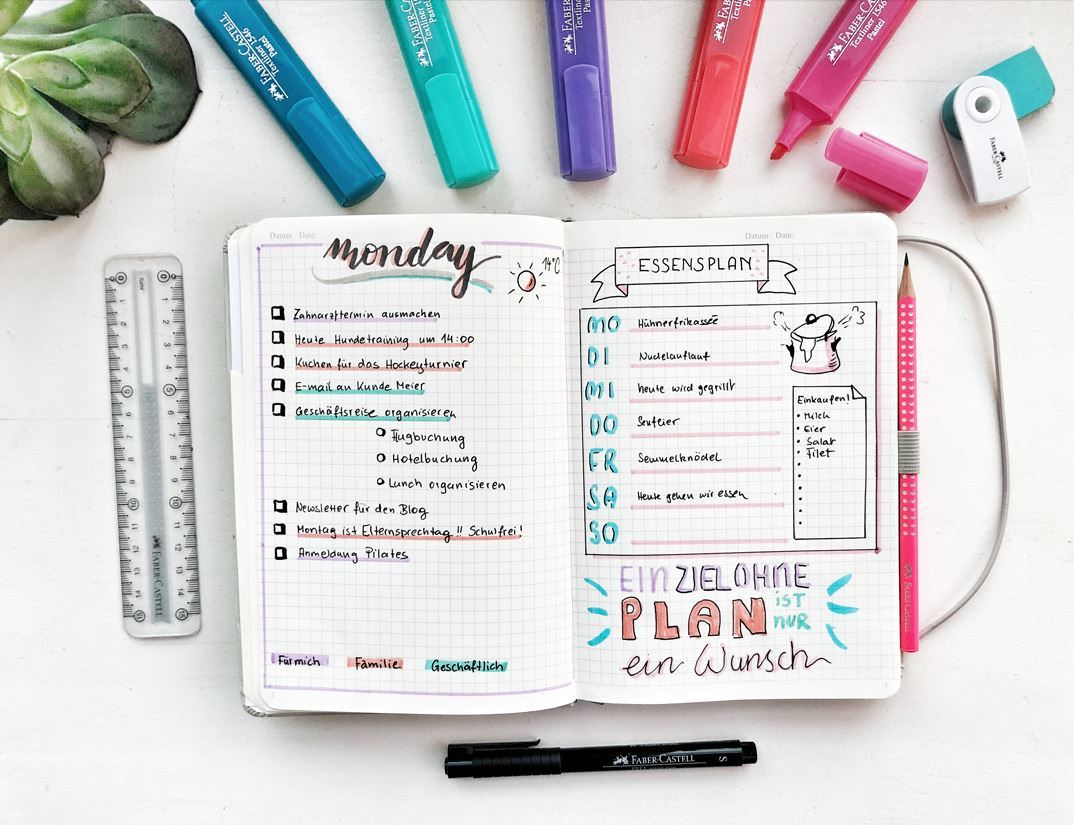 FABER-CASTELL
Textliner 1546
Pastel
FABER-CASTELL
Textliner 1546
Pastel
FABER-CASTELL
Textliner 1546
Pastel
FABER-CASTELL
Textliner 1546
Pastel
FABER-CASTELL
Textliner 1546
Pastel
FABER-CASTELL
Datum | Date:
monday
14°C
Zahnarzttermin ausmachen
Heute Hundetraining um 14:00
Kuchen für das Hockeyturnier
E-mail an Kunde Meier
Geschäftsreise organisieren
Flugbuchung
Hotelbuchung
Lunch organisieren
Newsletter für den Blog
Montag ist Elternsprechtag!! Schulfrei!
Anmeldung Pilates
Für mich Familie Geschäftlich
Datum | Date:
ESSENSPLAN
MO Hühnerfrikassee
DI Nudelauflauf
MI heute wird gegrillt
DO Senfeier
FR Semmelknödel
SA Heute gehen wir essen
SO
Einkaufen!
• Milch
• Eier
• Salat
• Filet
EIN ZIEL OHNE
PLAN IST NUR
ein Wunsch
0 1 2 3 4 5 6 7 8 9 10 11 12 13 14 15
FABER-CASTELL
FABER-CASTELL S